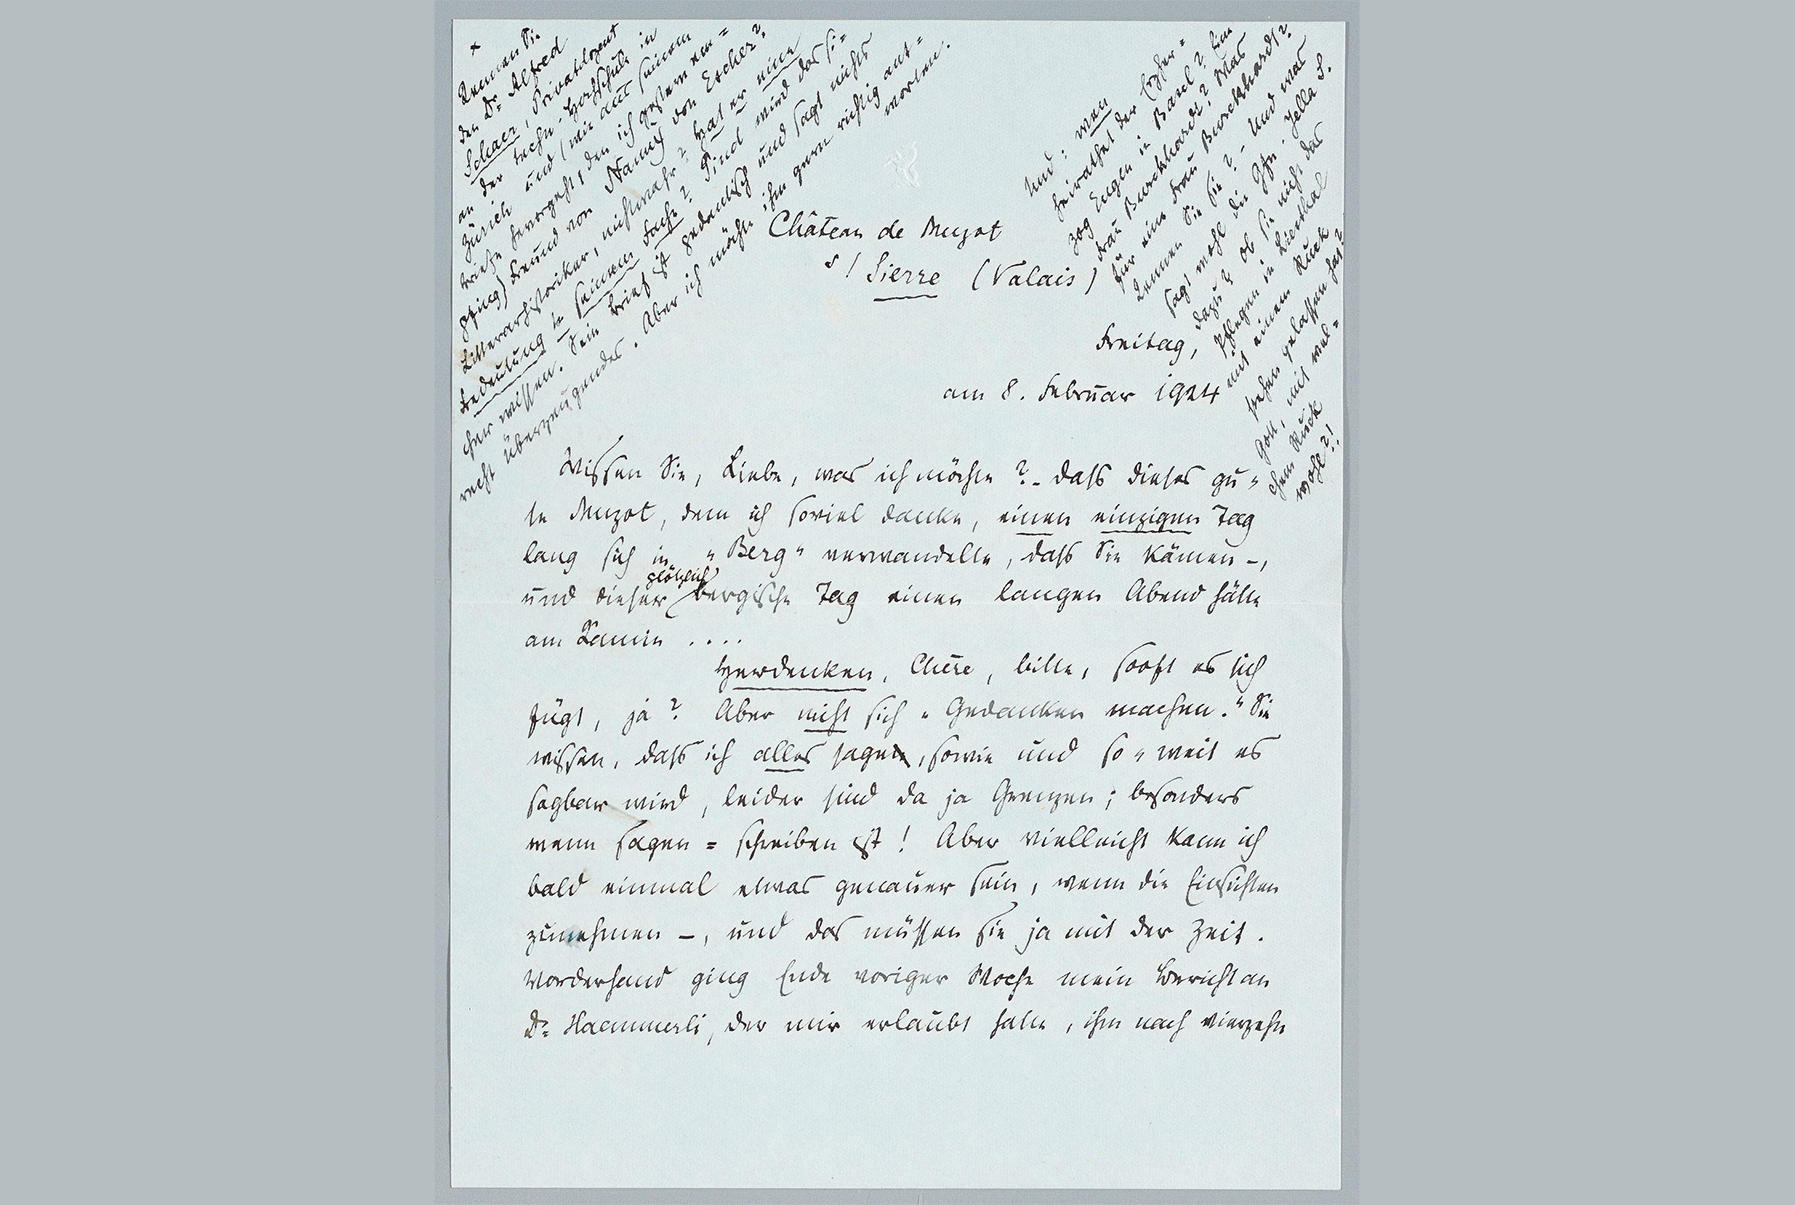 Château de Muzot
s/ Sierre (Valais)
Freitag,
am 8. Februar 1924
Wissen Sie, Liebe, was ich möchte? – dass dieses gu-
te Muzot, dem ich soviel danke, einen einzigen Tag
lang sich in „Berg“ verwandelte, dass Sie kämen –,
und dieser plötzlich bergische Tag einen langen Abend hätte
am Kamin ....
Herdenken, Chère, bitte, sooft es sich
fügt, ja? Aber nicht sich „Gedanken machen.“ Sie
wissen, dass ich alles sage, sowie und so-weit es
sagbar wird, leider sind da ja Grenzen; besonders
wenn sagen = schreiben ist! Aber vielleicht kann ich
bald einmal etwas genauer sein, wenn die Einsichten
zunehmen –, und das müssen sie ja mit der Zeit.
Vorderhand ging Ende voriger Woche mein Bericht an
Dr. Haemmerli, der mir erlaubt hatte, ihm nach vierzehn
x
Kennen Sie
den Dr. Alfred
Schaer, Privatdozent
an der techn. Hochschule in
Zürich und (wie aus seinem
Briefe hervorgeht, den ich gestern em-
pfing) Freund von Nanny von Escher?
Litterarhistoriker, nichtwahr? Hat er eine
Bedeutung in seinem Fache? Sind wird das si-
cher wissen. Sein Brief ist pedantisch und sagt nichts
recht überzeugendes. Aber ich möchte ihm gern richtig ant-
worten.
Und: wen
heirathet der Erzher-
zog Eugen in Basel? Eine
Frau Burckhardt? Was
für eine Frau Burckhardt?
Kennen Sie sie? – Und was
sagt wohl die Gfn. Jella S.
dazu? ob sie nicht das
Pflegen in Lienthal
mit einem Ruck
stehen gelassen hat?
Gott, mit wel-
chem Ruck
wohl?!